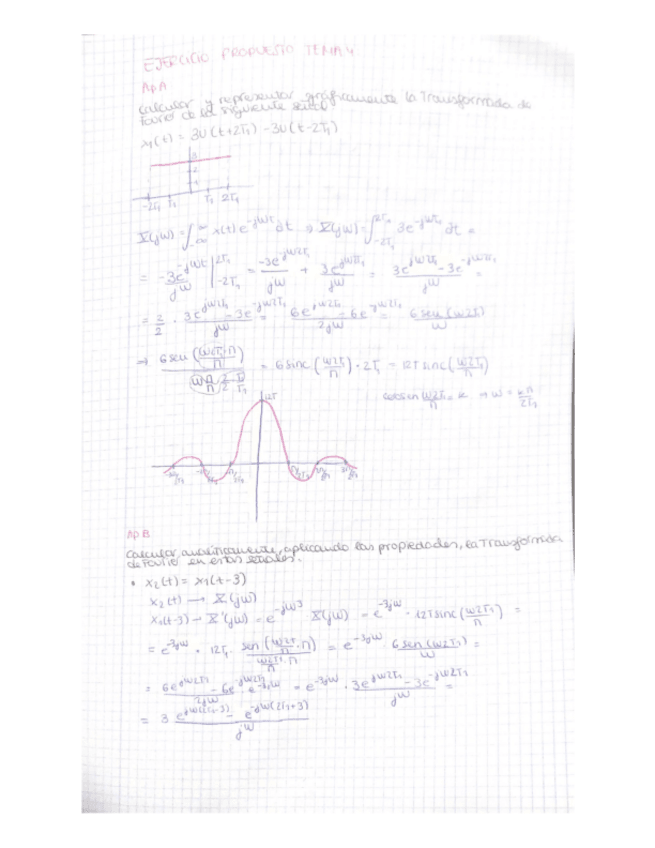 EJERCICIO PROPUESTO TEMA 4
Ap A
Calcular y representar gráficamente la Transformada de
Fourier de la siguiente señal
x₁(t) = 3U(t+2T₁) - 3U(t-2T₁)
3
2
1
-2T₁ T₁ T₁ 2T₁
X(jω) = ∫_{-∞}^{∞} x(t) e^{-jωt} dt → X(jω) = ∫_{-2T₁}^{2T₁} 3e^{-jωt} dt =
= -3e^{-jωt}/jω |_{-2T₁}^{2T₁} = -3e^{-jω2T₁}/jω + 3e^{jω2T₁}/jω = (3e^{jω2T₁} - 3e^{-jω2T₁})/jω =
= 2/2 · (3e^{jω2T₁} - 3e^{-jω2T₁})/jω = (6e^{jω2T₁} - 6e^{-jω2T₁})/2jω = 6 sen(ω2T₁)/ω
= 6 sinc(ω2T₁/π) · 2T₁ = 12T sinc(ω2T₁/π)
12T
ω2T₁/π = k → ω = kπ/2T₁
Ap B
Calcular, analíticamente, aplicando las propiedades, la Transformada
de Fourier en estas señales.
• x₂(t) = x₁(t-3)
x₂(t) → X(jω)
x₁(t-3) → X'(jω) = e^{-jω3} X(jω) = e^{-3jω} · 12T sinc(ω2T₁/π) =
= e^{-3jω} · 12T₁ · sen(ω2T₁/π · π)/(ω2T₁/π · π) = e^{-3jω} · 6 sen(ω2T₁)/ω =
= (6e^{jω2T₁} - 6e^{-jω2T₁})/2jω e^{-3jω} = e^{-3jω} · (3e^{jω2T₁} - 3e^{-jω2T₁})/jω =
= 3 (e^{jω(2T₁-3)} - e^{-jω(2T₁+3)})/jω